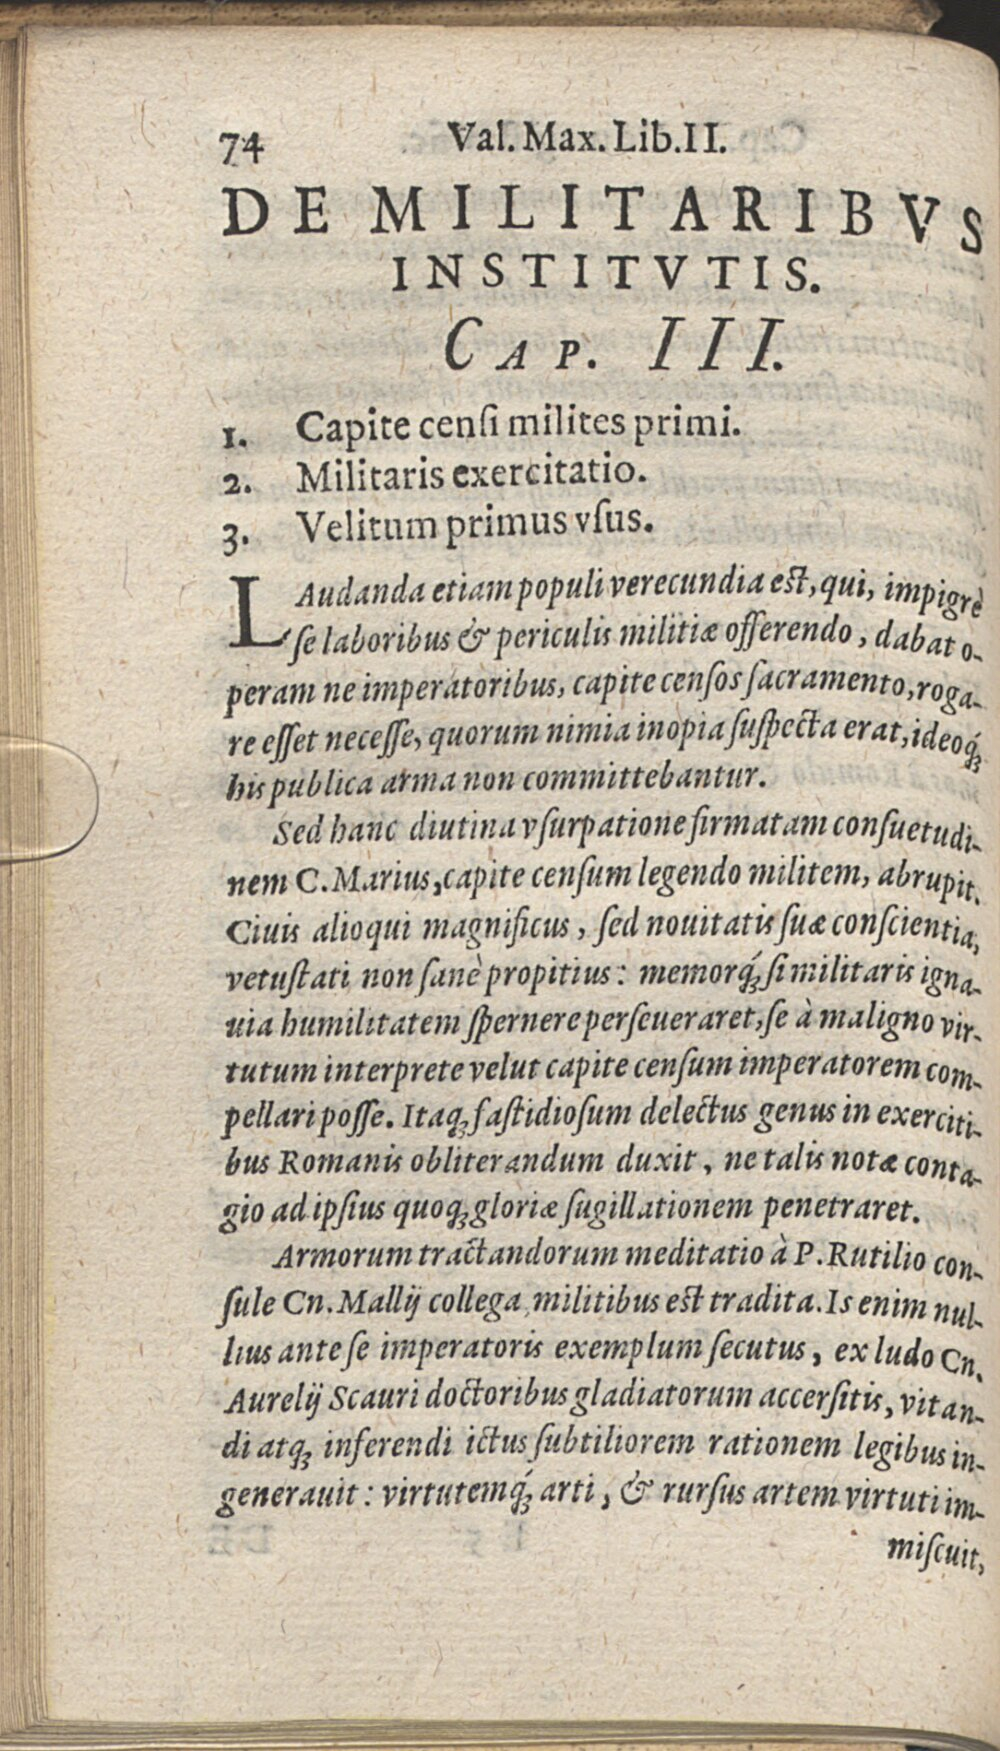 74 Val. Max. Lib. II.
DE MILITARIBVS
INSTITVTIS.
CAP. III.
1. Capite cenſi milites primi.
2. Militaris exercitatio.
3. Velitum primus vſus.
LAudanda etiam populi verecundia est, qui, impigrè
ſe laboribus & periculis militiæ offerendo, dabat o-
peram ne imperatoribus, capite cenſos ſacramento, roga-
re eſſet neceſſe, quorum nimia inopia ſuſpecta erat, ideoq́ꝫ
his publica arma non committebantur.
Sed hanc diutina vſurpatione firmatam conſuetudi-
nem C. Marius, capite cenſum legendo militem, abrupit.
Ciuis alioqui magnificus, ſed nouitatis ſuæ conſcientia,
vetuſtati non ſanè propitius: memorq́ꝫ ſi militaris igna-
uia humilitatem ſpernere perſeueraret, ſe à maligno vir-
tutum interprete velut capite cenſum imperatorem com-
pellari poſſe. Itaqꝫ faſtidioſum delectus genus in exerciti-
bus Romanis obliterandum duxit, ne talis notæ conta-
gio ad ipſius quoqꝫ gloriæ ſugillationem penetraret.
Armorum tractandorum meditatio à P. Rutilio con-
ſule Cn. Mallij collega militibus est tradita. Is enim nul-
lius ante ſe imperatoris exemplum ſecutus, ex ludo Cn.
Aurelij Scauri doctoribus gladiatorum accerſitis, vitan-
di atqꝫ inferendi ictus ſubtiliorem rationem legibus in-
generauit: virtutemq́ꝫ arti, & rurſus artem virtuti im-
miſcuit,